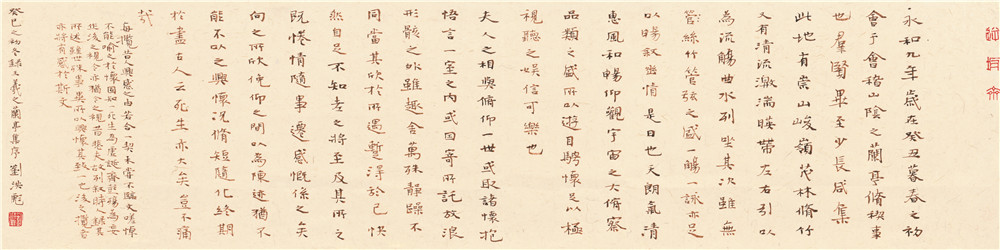 永和九年歲在癸丑暮春之初
會于會稽山陰之蘭亭脩禊事
也羣賢畢至少長咸集
此地有崇山峻嶺茂林脩竹
又有清流激湍暎帶左右引以
為流觴曲水列坐其次雖無
管絲竹管弦之盛一觴一詠亦足
以暢敘幽情是日也天朗氣清
惠風和暢仰觀宇宙之大俯察
品類之盛所以遊目騁懷足以極
視聽之娛信可樂也
夫人之相與俯仰一世或取諸懷抱
悟言一室之內或因寄所託放浪
形骸之外雖趣舍萬殊靜躁不
同當其欣於所遇暫得於己快
然自足不知老之將至及其所之
既惓情隨事遷感慨係之矣
向之所欣俛仰之間以為陳迹猶不
能不以之興懷況脩短隨化終期
於盡古人云死生亦大矣豈不痛
哉
每攬昔人興感之由若合一契未嘗不臨文嗟悼
不能喻之於懷固知一死生為虛誕齊彭殤為妄
作後之視今亦猶今之視昔悲夫故列敘時人錄其
所述雖世殊事異所以興懷其致一也後之攬者
亦將有感於斯文
癸巳之初冬錄王羲之蘭亭集序 劉洪彪